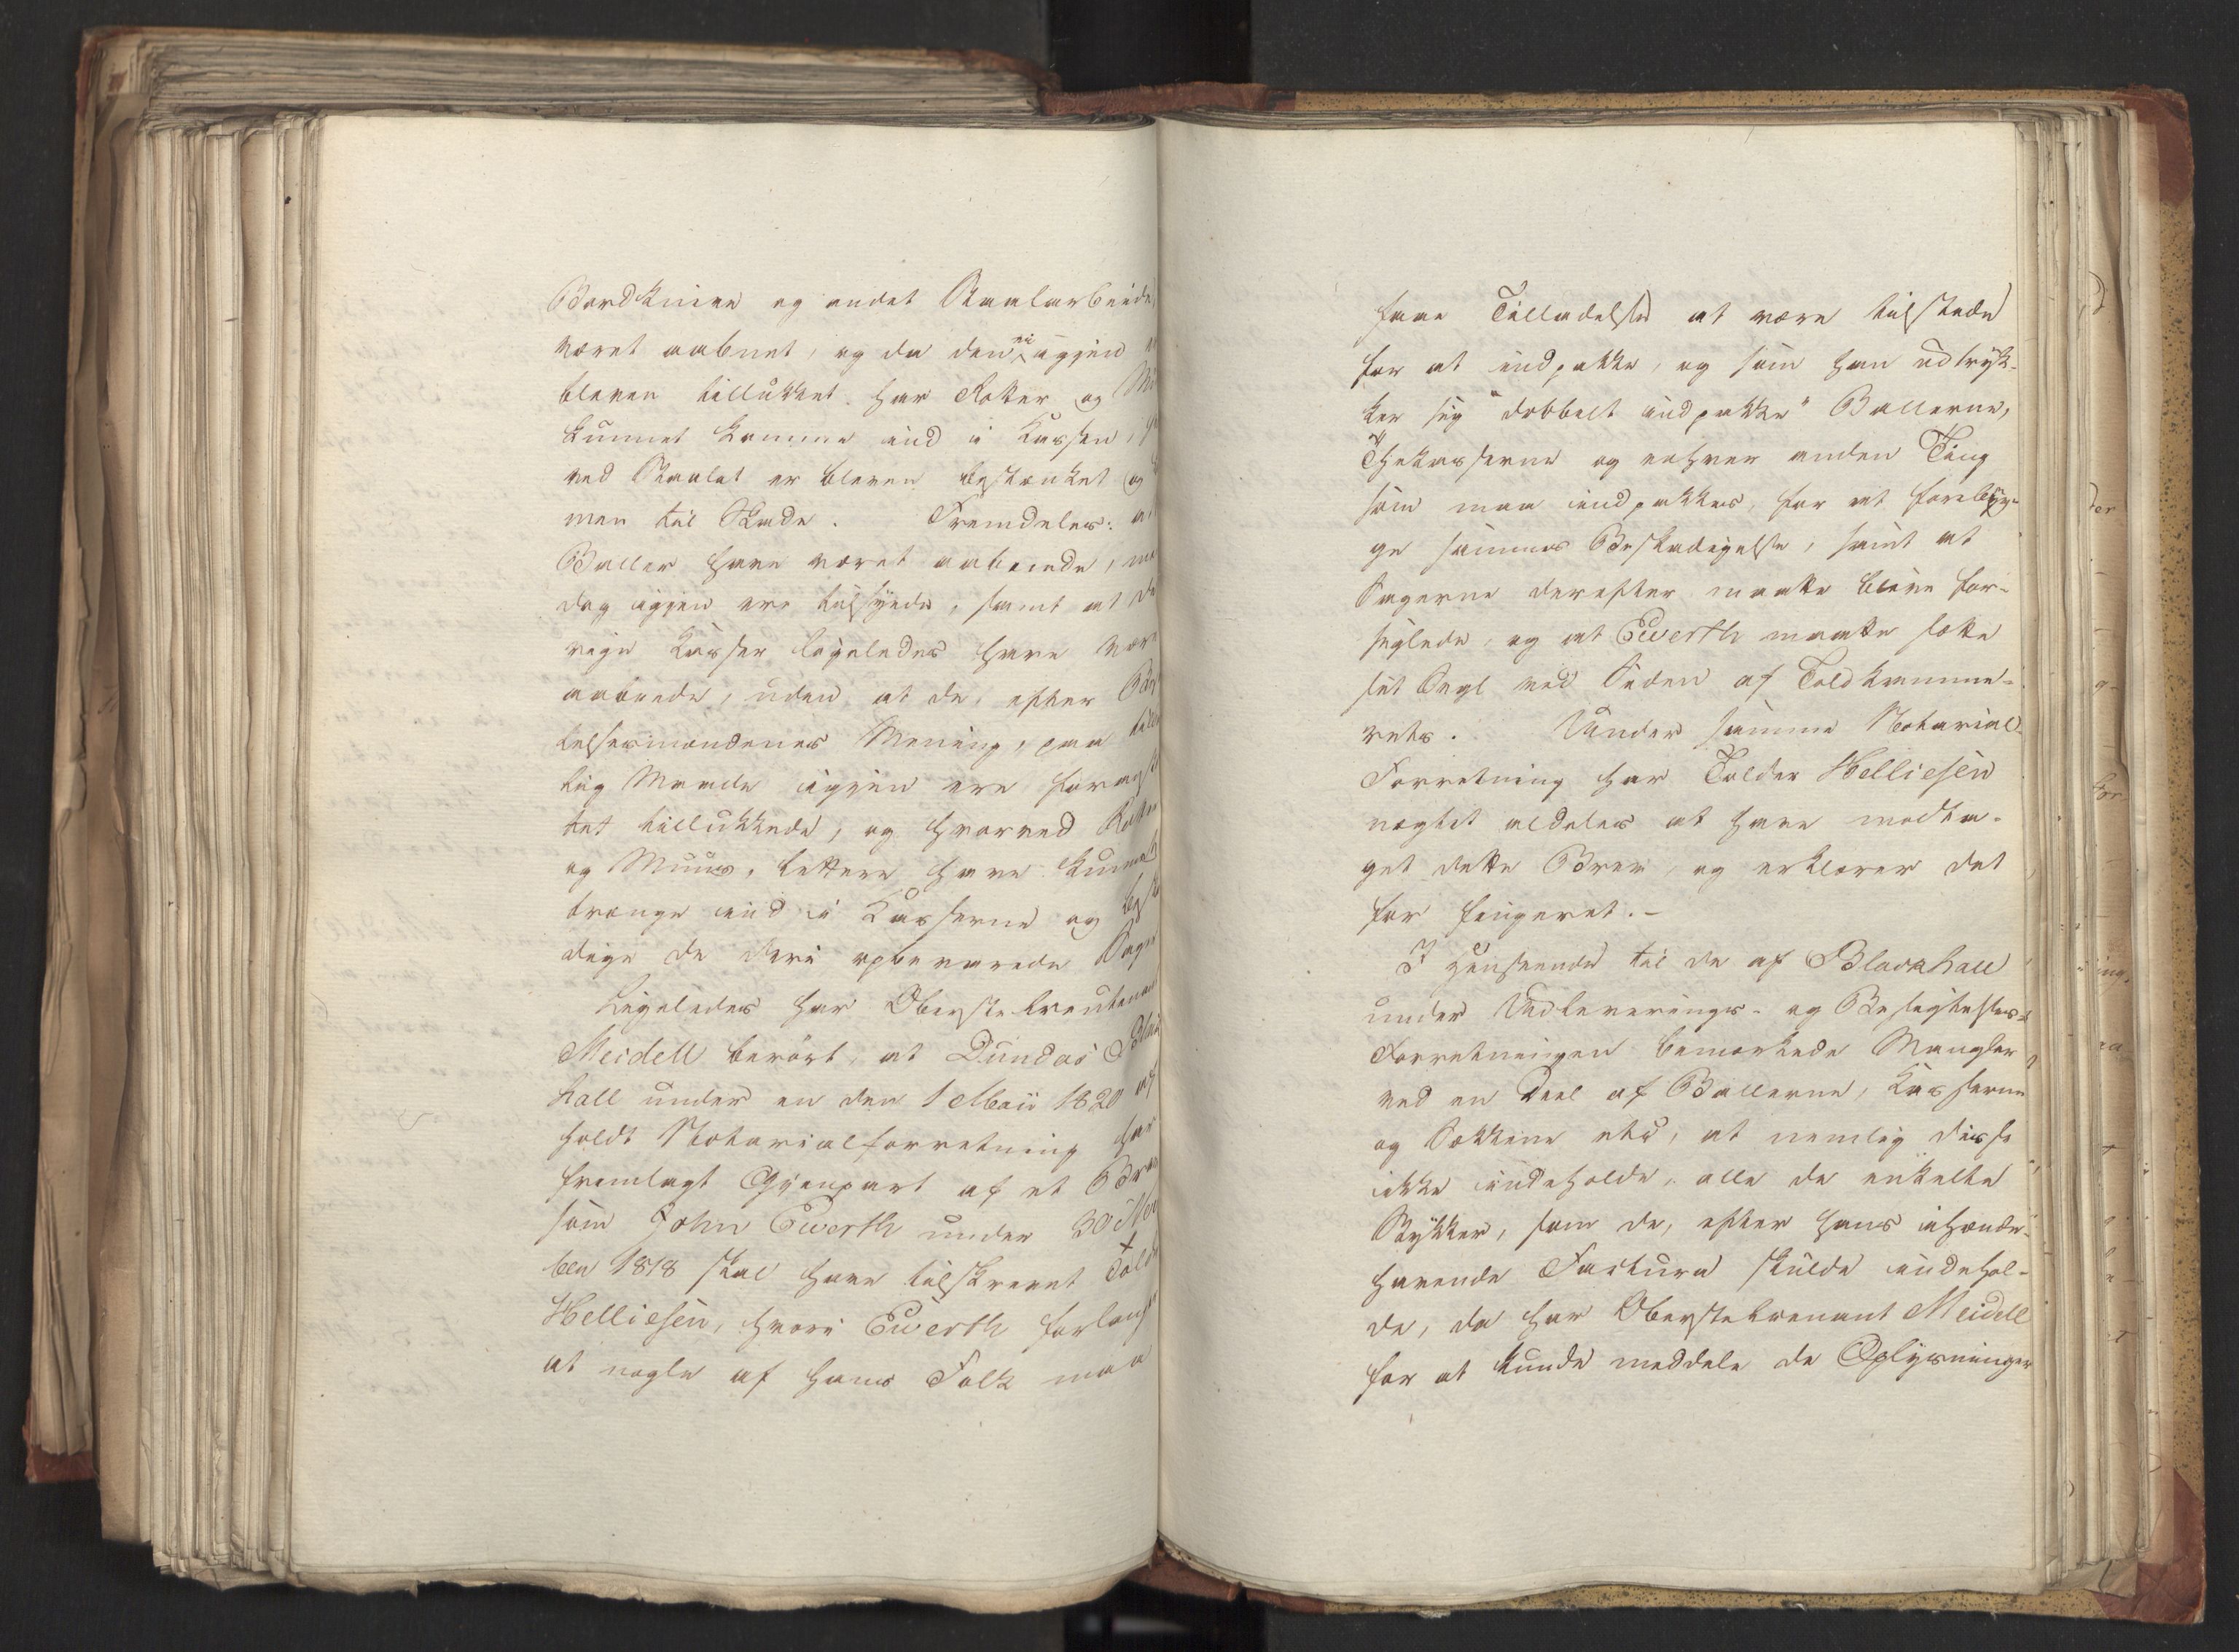 Bordknive og andet Staalarbeide,
været aabnet, og da den ei igjen
bleven tillukket, har Rotter og
kunnet komme ind i Kassen,
ved Staalet er bleven bestænket og
men til Skade. Fremdeles:
Baller have været aabnede,
dog igjen ere tilsyede, samt at
rige Kasser ligeledes have vær
aabnede, uden at de, efter
telsesmændenes Mening, paa
lig Maade igjen ere for
tet tillukkede, og hvorved Rotter
og Muus, lettere have kunnet
trænge ind i Kasserne og
dige de deri opbevarede Sager
Ligeledes har Oberstelieutenant
Meidell berört, at Dundas Black
hall under en den 1 Maii 1820 af
holdt Notarialforretning har
fremlagt Gjenpart af et Brev
som John Ewerth under 30
ber 1818 skal have tilskrevet Told
Helliesen, hvori Ewerth forlang
at nogle af hans Folk maa
faae Tilladelse at være tilstede
for at indpakke, og som han udtryk-
ker sig "dobbelt indpakke" Ballerne,
Thekasserne og enhver anden Ting
som maa indpakkes, for at forebyg-
ge sammes Beskadigelse, samt at
Sagerne derefter maatte blive for-
seglede, og at Ewerth maatte sætte
sit Segl ved Siden af Toldkamme-
rets. Under samme Notarial-
Forretning har Tolder Helliesen
nægtet aldeles at have modta-
get dette Brev, og erklærer det
for fingeret.-
I Henseende til de af Blackhall
under Udleverings- og Besigtelses-
Forretningen bemærkede Mangler
ved en Deel af Ballerne, Kasserne
og Sækkene etc, at nemlig disse
ikke indeholde alle de enkelte
Stykker, som de, efter hans ihænde-
havende Factura skulde indehol-
de, da har Oberstelieutenant Meidell
for at kunde meddele de Oplysninger